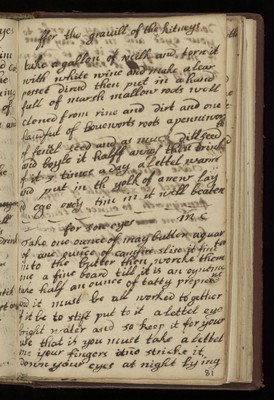 ffor the gravill of the kitneys
take a gallon of milk and torn it
with white wine and make a clear
posset drind then put in a hand
full of marsh mallow roots well
clensed from rine and dirt and one
handful of roots a penniworth
of fenill seed and as much dill seed
and boyle it halff away then drink
of it 3 times a day a lettel warm
and put in the yolk of a new lay
ege evry time in it well beaten
for sore eyes
Take one ounce of may butter a quar
of one ounce of camfier slise it fin
into the butter then worke them
one a fine bord till it is an oyntme
take half an ounce of tutty prepare
and it must be all worked together
if it be to stiff put to it a lettel eye
bright water and so keep it for your
use that is you must take a lettel
one your fingers and stricke it
down your eyes at night lying
81